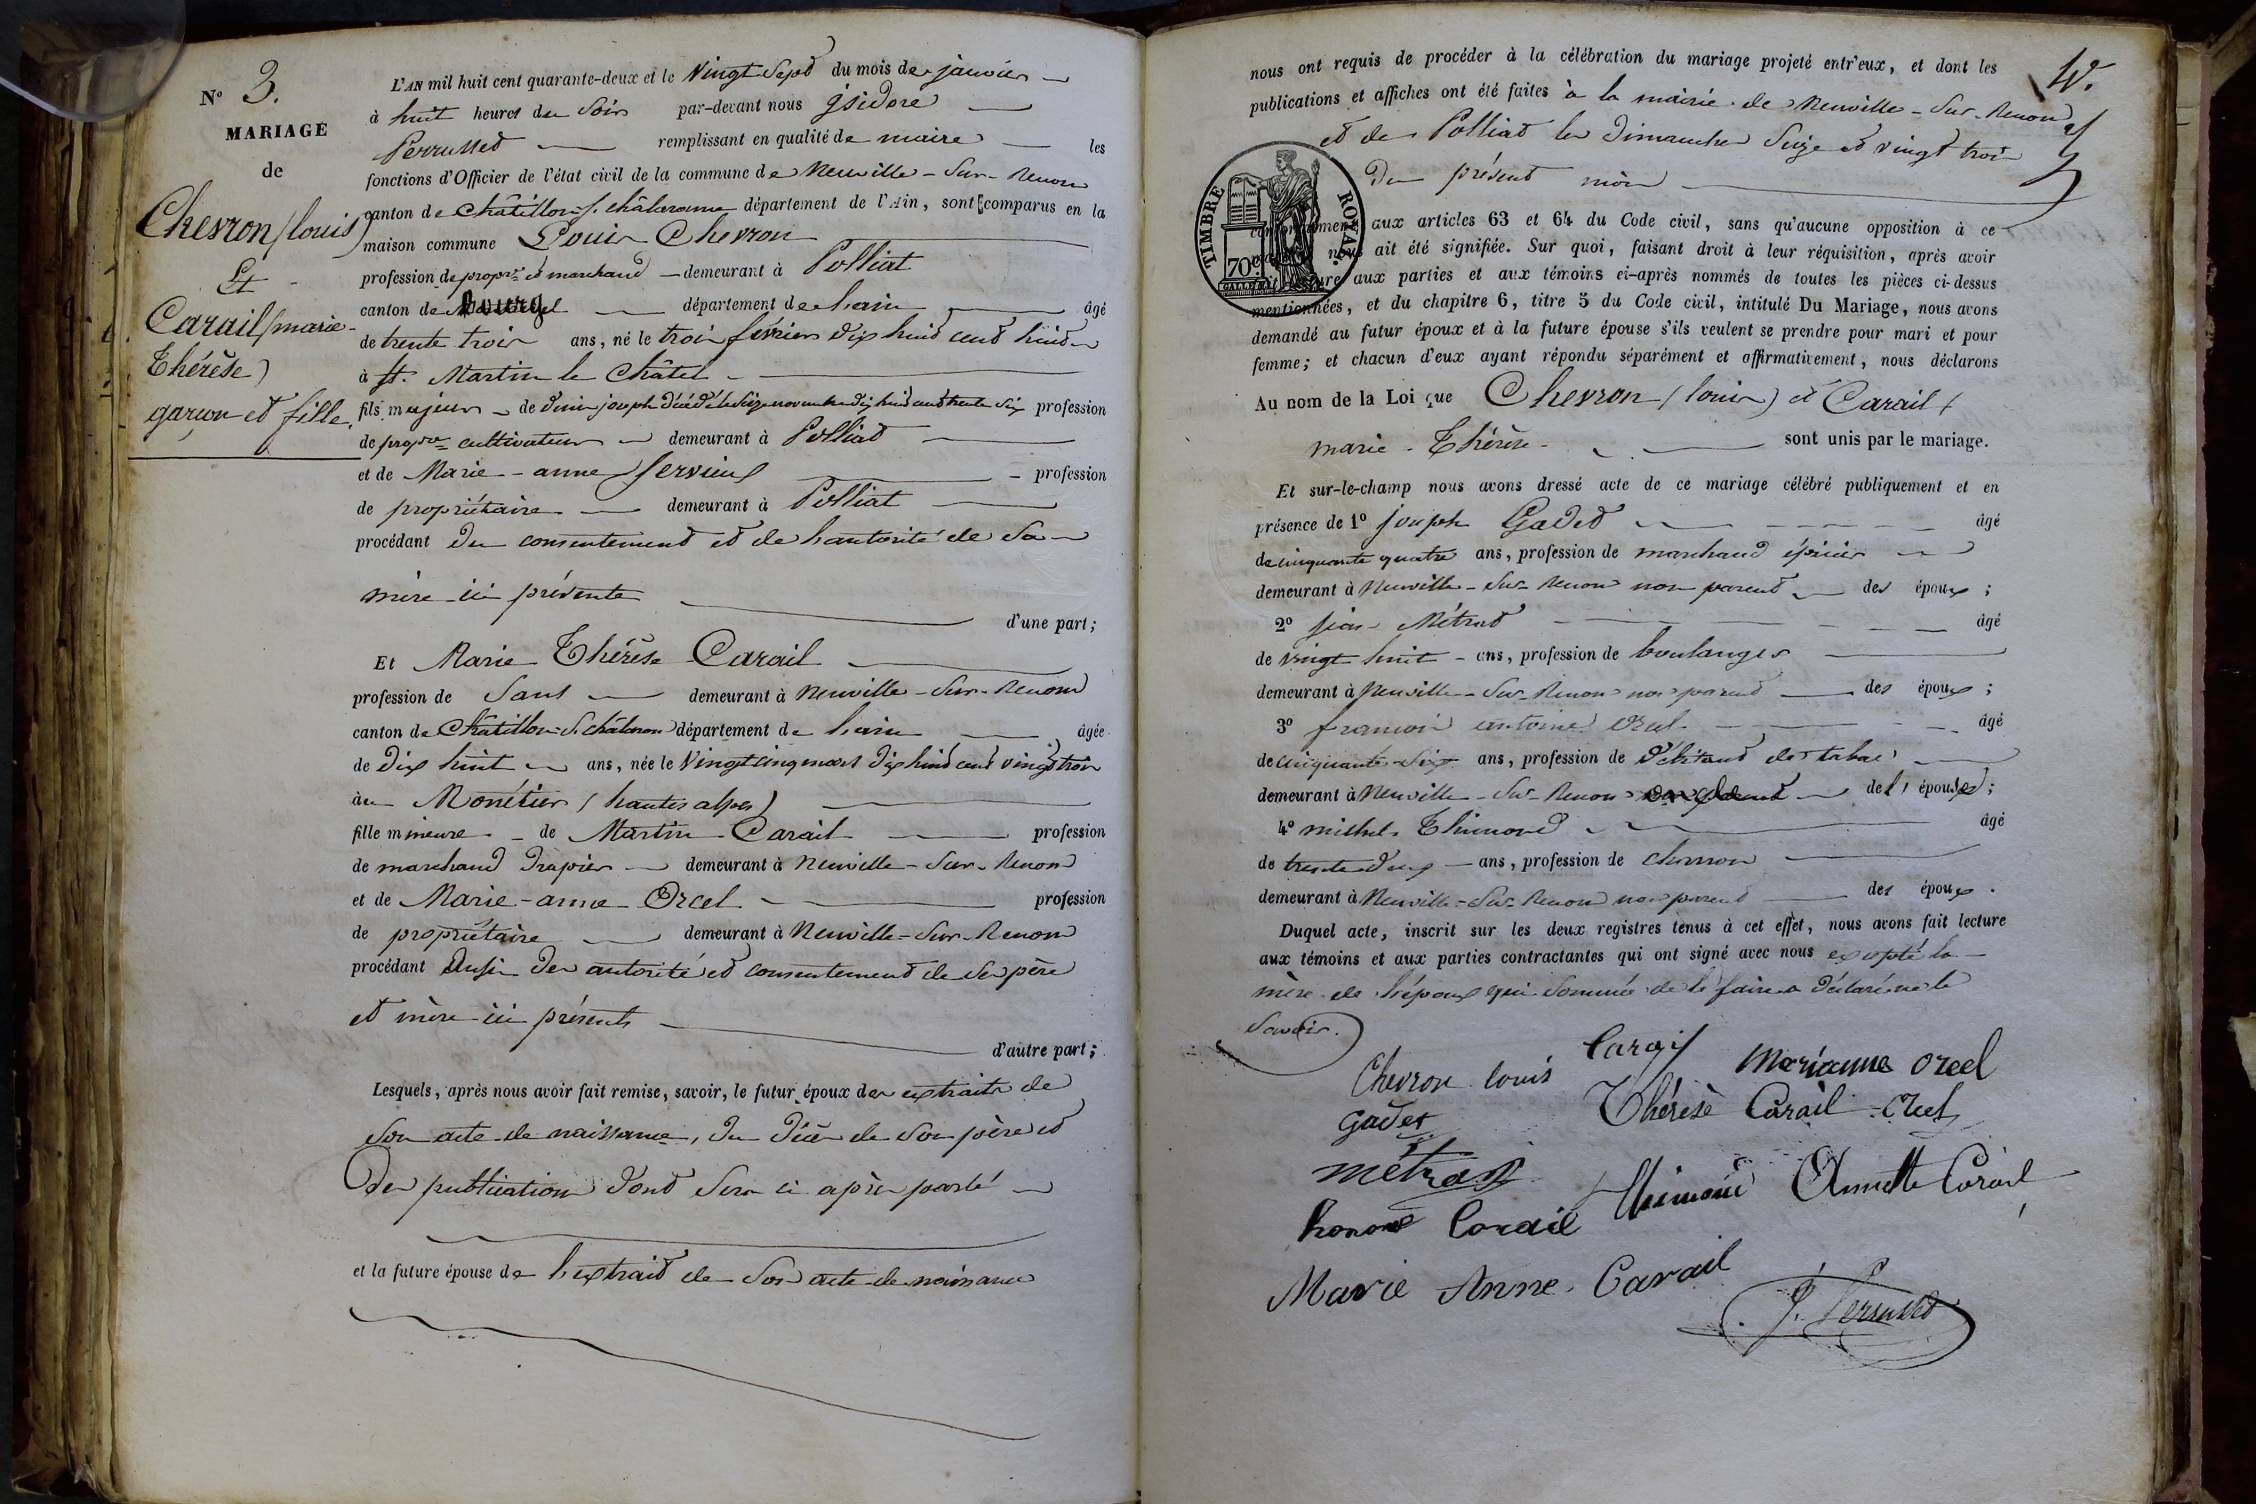 N.º 3.
MARIAGE
de
Chevron (louis)
Et
Carail (marie-
Thérèse)
garçon et fille.
L'AN mil huit cent quarante-deux et le Vingt Sept du mois de janvier
à huit heures du Soir par-devant nous jsidore
Perrusset remplissant en qualité de maire les
fonctions d'Officier de l'état civil de la commune de Neuville-Sur-Renon
canton de Châtillon-s. châlaronne département de l'Ain, sont comparus en la
maison commune Louis Chevron
profession de propre et marchand demeurant à Polliat
canton de Bourg département de lain âgé
de trente trois ans, né le trois février dix huit cent huit
à St. Martin le Châtel
fils majeur de Denis joseph décédé le Seize novembre dix huit cent trente Six profession
de propre cultivateur demeurant à Polliat
et de Marie-anne Servieux profession
de propriétaire demeurant à Polliat
procédant du consentement et de lautorité de Sa
mère ici présente
d'une part;
Et Marie Thérèse Carail
profession de Sans demeurant à Neuville-Sur-Renon
canton de Châtillon-S. châlaron département de lain âgée
de Dix huit ans, née le Vingt cinq mars dix huit cent vingt trois
au Monétier (hautes alpes)
fille mineure de Martin Carail profession
de marchand Drapier demeurant à Neuville-Sur-Renon
et de Marie-anne Orcel profession
de propriétaire demeurant à Neuville-Sur-Renon
procédant aussi des autorité et consentement de Ses père
et mère ici présents
d'autre part;
Lesquels, après nous avoir fait remise, savoir, le futur époux des extraits de
Son acte de naissance, du décès de Son père et
Des publications dont Sera ci après parlé
et la future épouse de lextrait de Son acte de naissance
4.
nous ont requis de procéder à la célébration du mariage projeté entr'eux, et dont les
publications et affiches ont été faites à la mairie de Neuville-Sur-Renon
et de Polliat les Dimanches Seize et vingt trois
du présent mois
TIMBRE ROYAL.
70c.
aux articles 63 et 64 du Code civil, sans qu'aucune opposition à ce
nous ait été signifiée. Sur quoi, faisant droit à leur réquisition, après avoir
aux parties et aux témoins ci-après nommés de toutes les pièces ci-dessus
mentionnées, et du chapitre 6, titre 5 du Code civil, intitulé Du Mariage, nous avons
demandé au futur époux et à la future épouse s'ils veulent se prendre pour mari et pour
femme; et chacun d'eux ayant répondu séparément et affirmativement, nous déclarons
Au nom de la Loi que Chevron (louis) et Carail (
marie-Thérèse sont unis par le mariage.
Et sur-le-champ nous avons dressé acte de ce mariage célébré publiquement et en
présence de 1º joseph Gadet âgé
de cinquante quatre ans, profession de marchand épicier
demeurant à Neuville-Sur-Renon non parent des époux;
2º Métrat âgé
de vingt huit ans, profession de boulanger
demeurant à Neuville-Sur-Renon non parent des époux;
3º françois antoine Orcel âgé
de cinquante-Six ans, profession de débitant de tabac
demeurant à Neuville-Sur-Renon de l'épouse;
4º michel Thimond âgé
de trente deux ans, profession de charron
demeurant à Neuville-Sur-Renon non parent des époux.
Duquel acte, inscrit sur les deux registres tenus à cet effet, nous avons fait lecture
aux témoins et aux parties contractantes qui ont signé avec nous excepté la
mère de lépoux qui Sommée de le faire a déclaré ne le
Savoir.
Chevron louis Marianne Orcel
Gadet Thérèse Carail Orcel
métrat
Thimond Annette Carail
honoré Carail
Marie Anne Carail
J. Perrusset